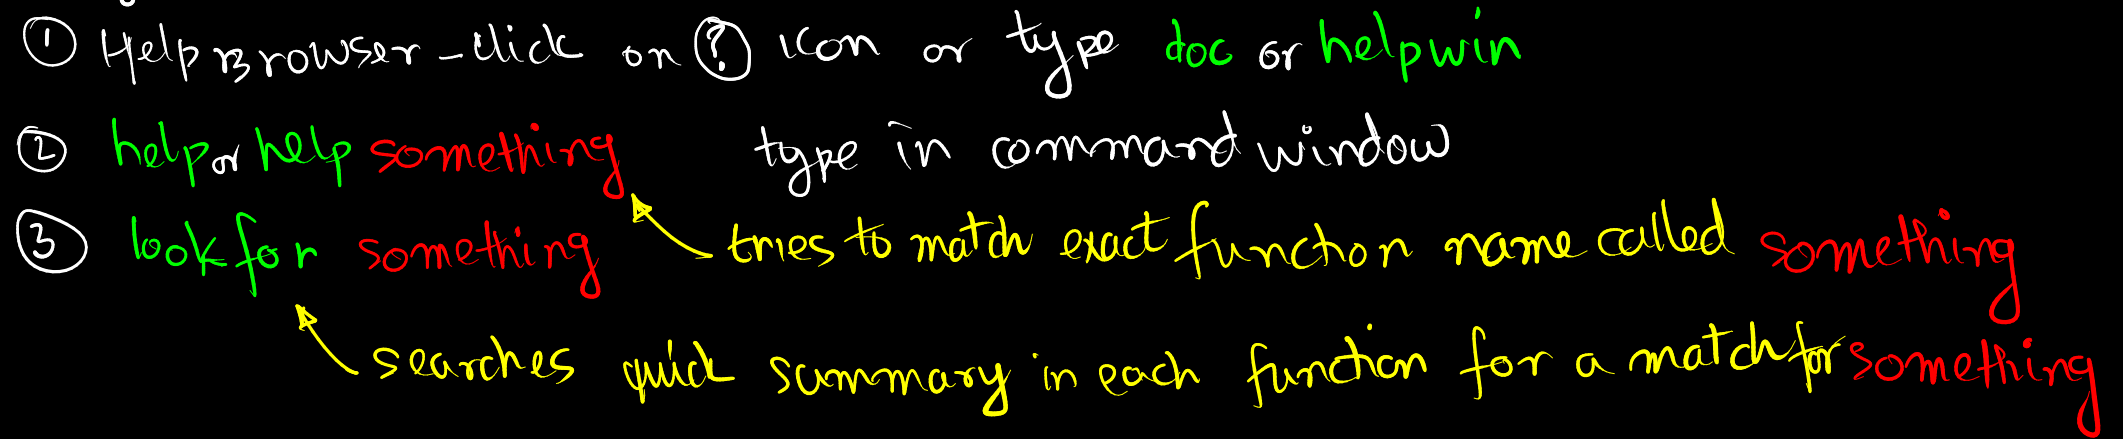 ① Help Browser - click on ? icon or type doc or helpwin
② help or help something type in command window
③ lookfor something tries to match exact function name called something
searches quick summary in each function for a match for something